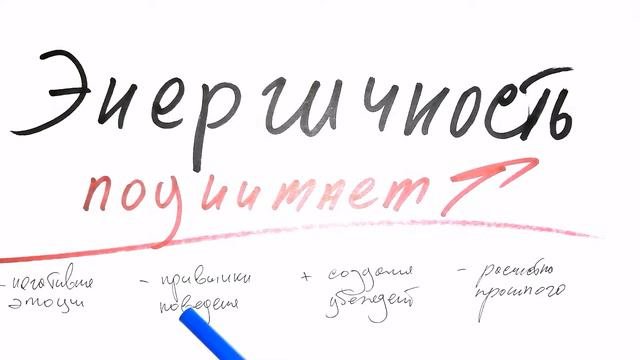 Энергичность
поднимает
- негативные
эмоции
- привычки
поведения
+ создание
убеждений
- расчистка
прошлого